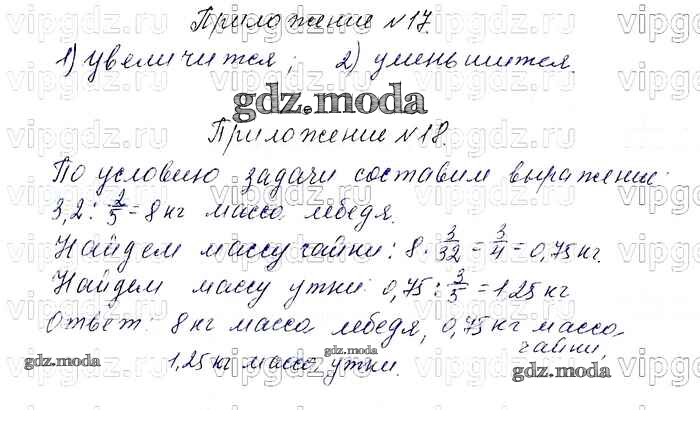 Приложение №17.
1) увеличится; 2) уменьшится.
gdz.moda
Приложение №18.
По условию задачи составим выражение:
3,2 : 2/5 = 8 кг масса лебедя.
Найдем массу чайки: 8 · 3/32 = 3/4 = 0,75 кг.
Найдем массу утки: 0,75 : 3/5 = 1,25 кг
Ответ: 8 кг масса лебедя, 0,75 кг масса
чайки,
1,25 кг масса утки.
gdz.moda
gdz.moda
gdz.moda
vipgdz.ru